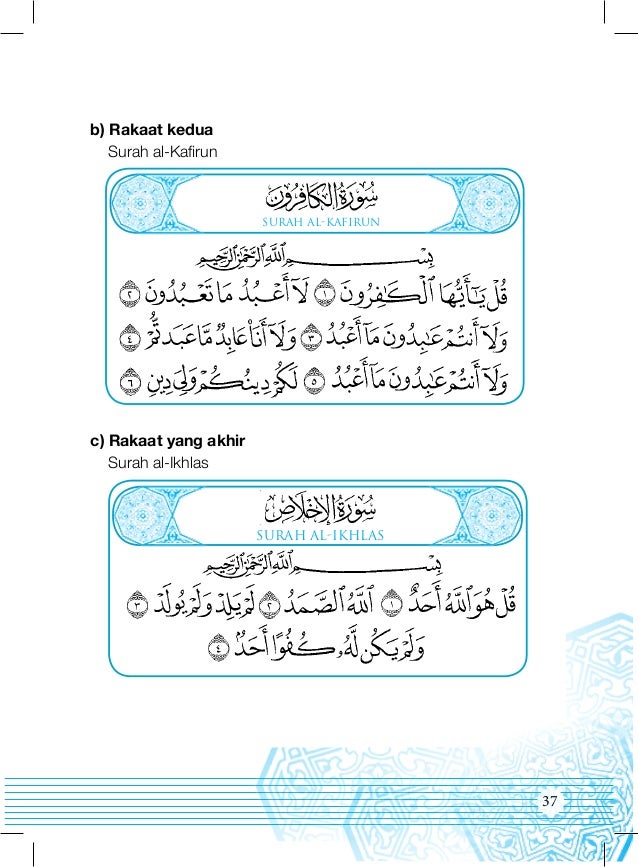 b) Rakaat kedua
Surah al-Kafirun
سُورَةُ الكَافِرُونَ
SURAH AL-KAFIRUN
بِسْمِ ٱللَّهِ ٱلرَّحْمَٰنِ ٱلرَّحِيمِ
قُلْ يَٰٓأَيُّهَا ٱلْكَٰفِرُونَ ١ لَآ أَعْبُدُ مَا تَعْبُدُونَ ٢
وَلَآ أَنتُمْ عَٰبِدُونَ مَآ أَعْبُدُ ٣ وَلَآ أَنَا۠ عَابِدٌ مَّا عَبَدتُّمْ ٤
وَلَآ أَنتُمْ عَٰبِدُونَ مَآ أَعْبُدُ ٥ لَكُمْ دِينُكُمْ وَلِىَ دِينِ ٦
c) Rakaat yang akhir
Surah al-Ikhlas
سُورَةُ الإِخْلَاصِ
SURAH AL-IKHLAS
بِسْمِ ٱللَّهِ ٱلرَّحْمَٰنِ ٱلرَّحِيمِ
قُلْ هُوَ ٱللَّهُ أَحَدٌ ١ ٱللَّهُ ٱلصَّمَدُ ٢ لَمْ يَلِدْ وَلَمْ يُولَدْ ٣
وَلَمْ يَكُن لَّهُۥ كُفُوًا أَحَدٌۢ ٤
37